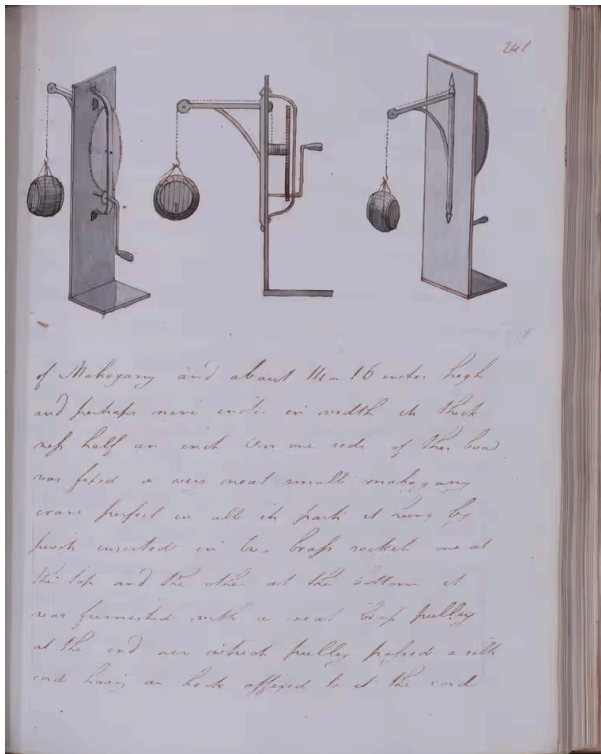 241
of Mahogany and about 14 or 16 inches high
and perhaps nine inches in width its thick
ness half an inch on one side of this board
was fixed a very neat small mahogany
crane perfect in all its parts it runs by
pivots inserted in two brass sockets one at
the top and the other at the bottom it
was furnished with a neat brass pulley
at the end over which pulley passed a silk
cord having an hook affixed to it the cord